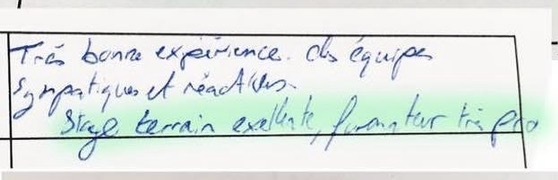 Très bonne expérience. des équipes
sympatiques et réactives.
Stage terrain exellente, formateur très pro